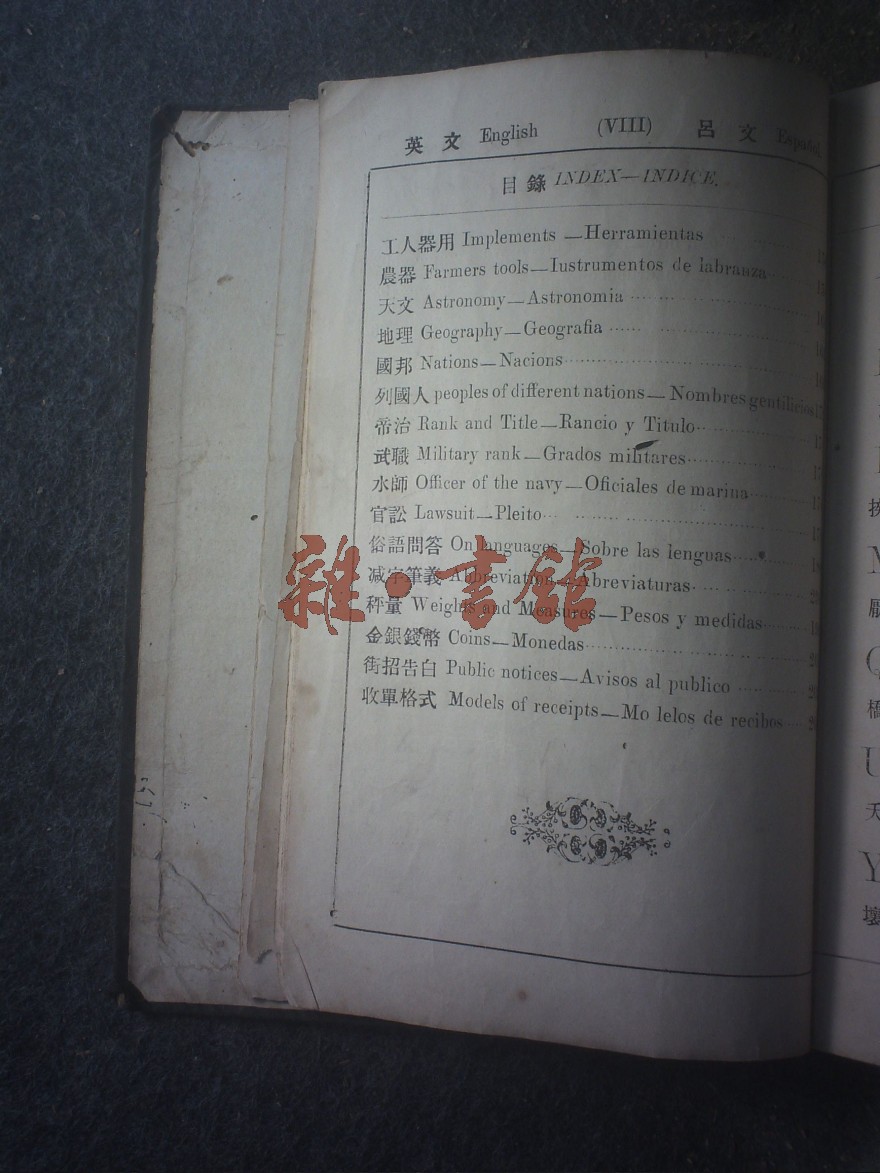 英文 English (VIII) 呂文 Español.
目錄 INDEX—INDICE.
工人器用 Implements —Herramientas
農器 Farmers tools—Iustrumentos de labranza
天文 Astronomy—Astronomia
地理 Geography—Geografia
國邦 Nations—Nacions
列國人 peoples of different nations— Nombres gentilicios
帝治 Rank and Title—Rancio y Titulo
武職 Military rank—Grados militares
水師 Officer of the navy—Oficiales de marina
官訟 Lawsuit—Pleito
俗語問答 On languages—Sobre las lenguas
减字筆義 Abbreviation—Abreviaturas
秤量 Weights and Measures—Pesos y medidas
金銀錢幣 Coins—Monedas
街招告白 Public notices—Avisos al publico
收單格式 Models of receipts—Mo lelos de recibos
雜·書館
Q
橋
U
天
Y
壞